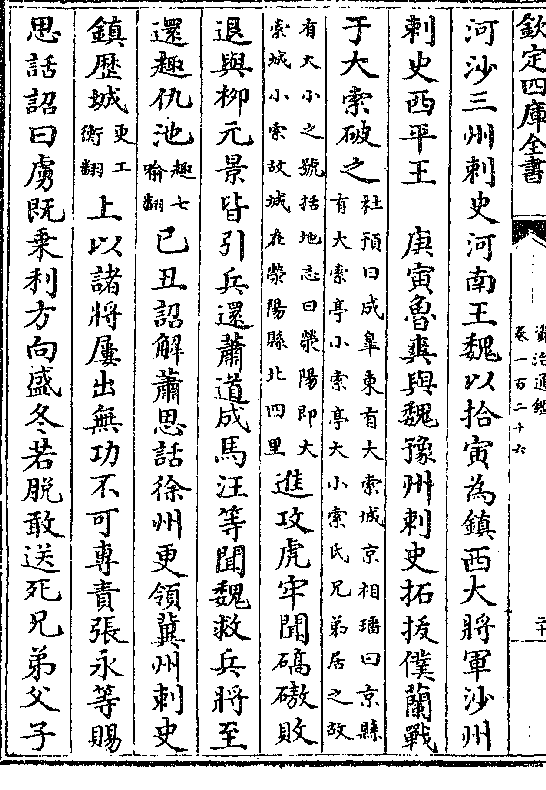 欽定四庫全書
資治通鑑
卷一百二十六
二十
河沙三州刺史河南王魏以拾寅為鎮西大將軍沙州
刺史西平王　庚寅魯爽與魏豫州刺史拓拔僕蘭戰
于大索破之
社預曰成臯東有大索城京相璠曰京縣
有大索亭小索亭大小索氏兄弟居之故
有大小之號括地志曰滎陽即大
索城小索故城在滎陽縣北四里
進攻虎牢聞碻磝敗
退與柳元景皆引兵還蕭道成馬汪等聞魏救兵將至
還趣仇池
趣七
喻翻
己丑詔解蕭思話徐州更領冀州刺史
鎮歷城
更工
衡翻
上以諸將屢出無功不可專責張永等賜
思話詔曰虜既乗利方向盛冬若脱敢送死兄弟父子